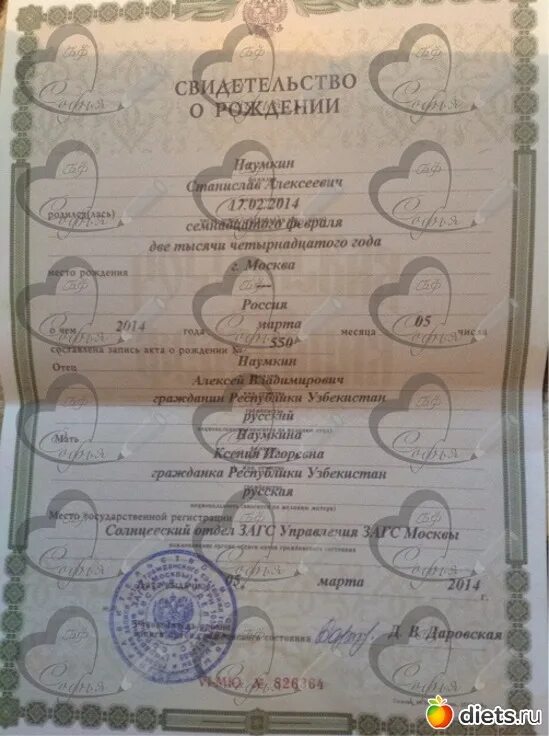 СВИДЕТЕЛЬСТВО
О РОЖДЕНИИ
Наумкин
Станислав Алексеевич
родился(лась) 17.02.2014
семнадцатого февраля
две тысячи четырнадцатого года
место рождения г. Москва
---
Россия
о чем 2014 года марта месяца 05 числа
составлена запись акта о рождении № 550
Отец Наумкин
Алексей Владимирович
гражданин Республики Узбекистан
русский
Мать Наумкина
Ксения Игоревна
гражданка Республики Узбекистан
русская
Место государственной регистрации
Солнцевский отдел ЗАГС Управления ЗАГС Москвы
Дата выдачи 05 марта 2014 г.
состояния Д. В. Даровская
VI-МЮ № 826364
БФ
Софья
diets.ru